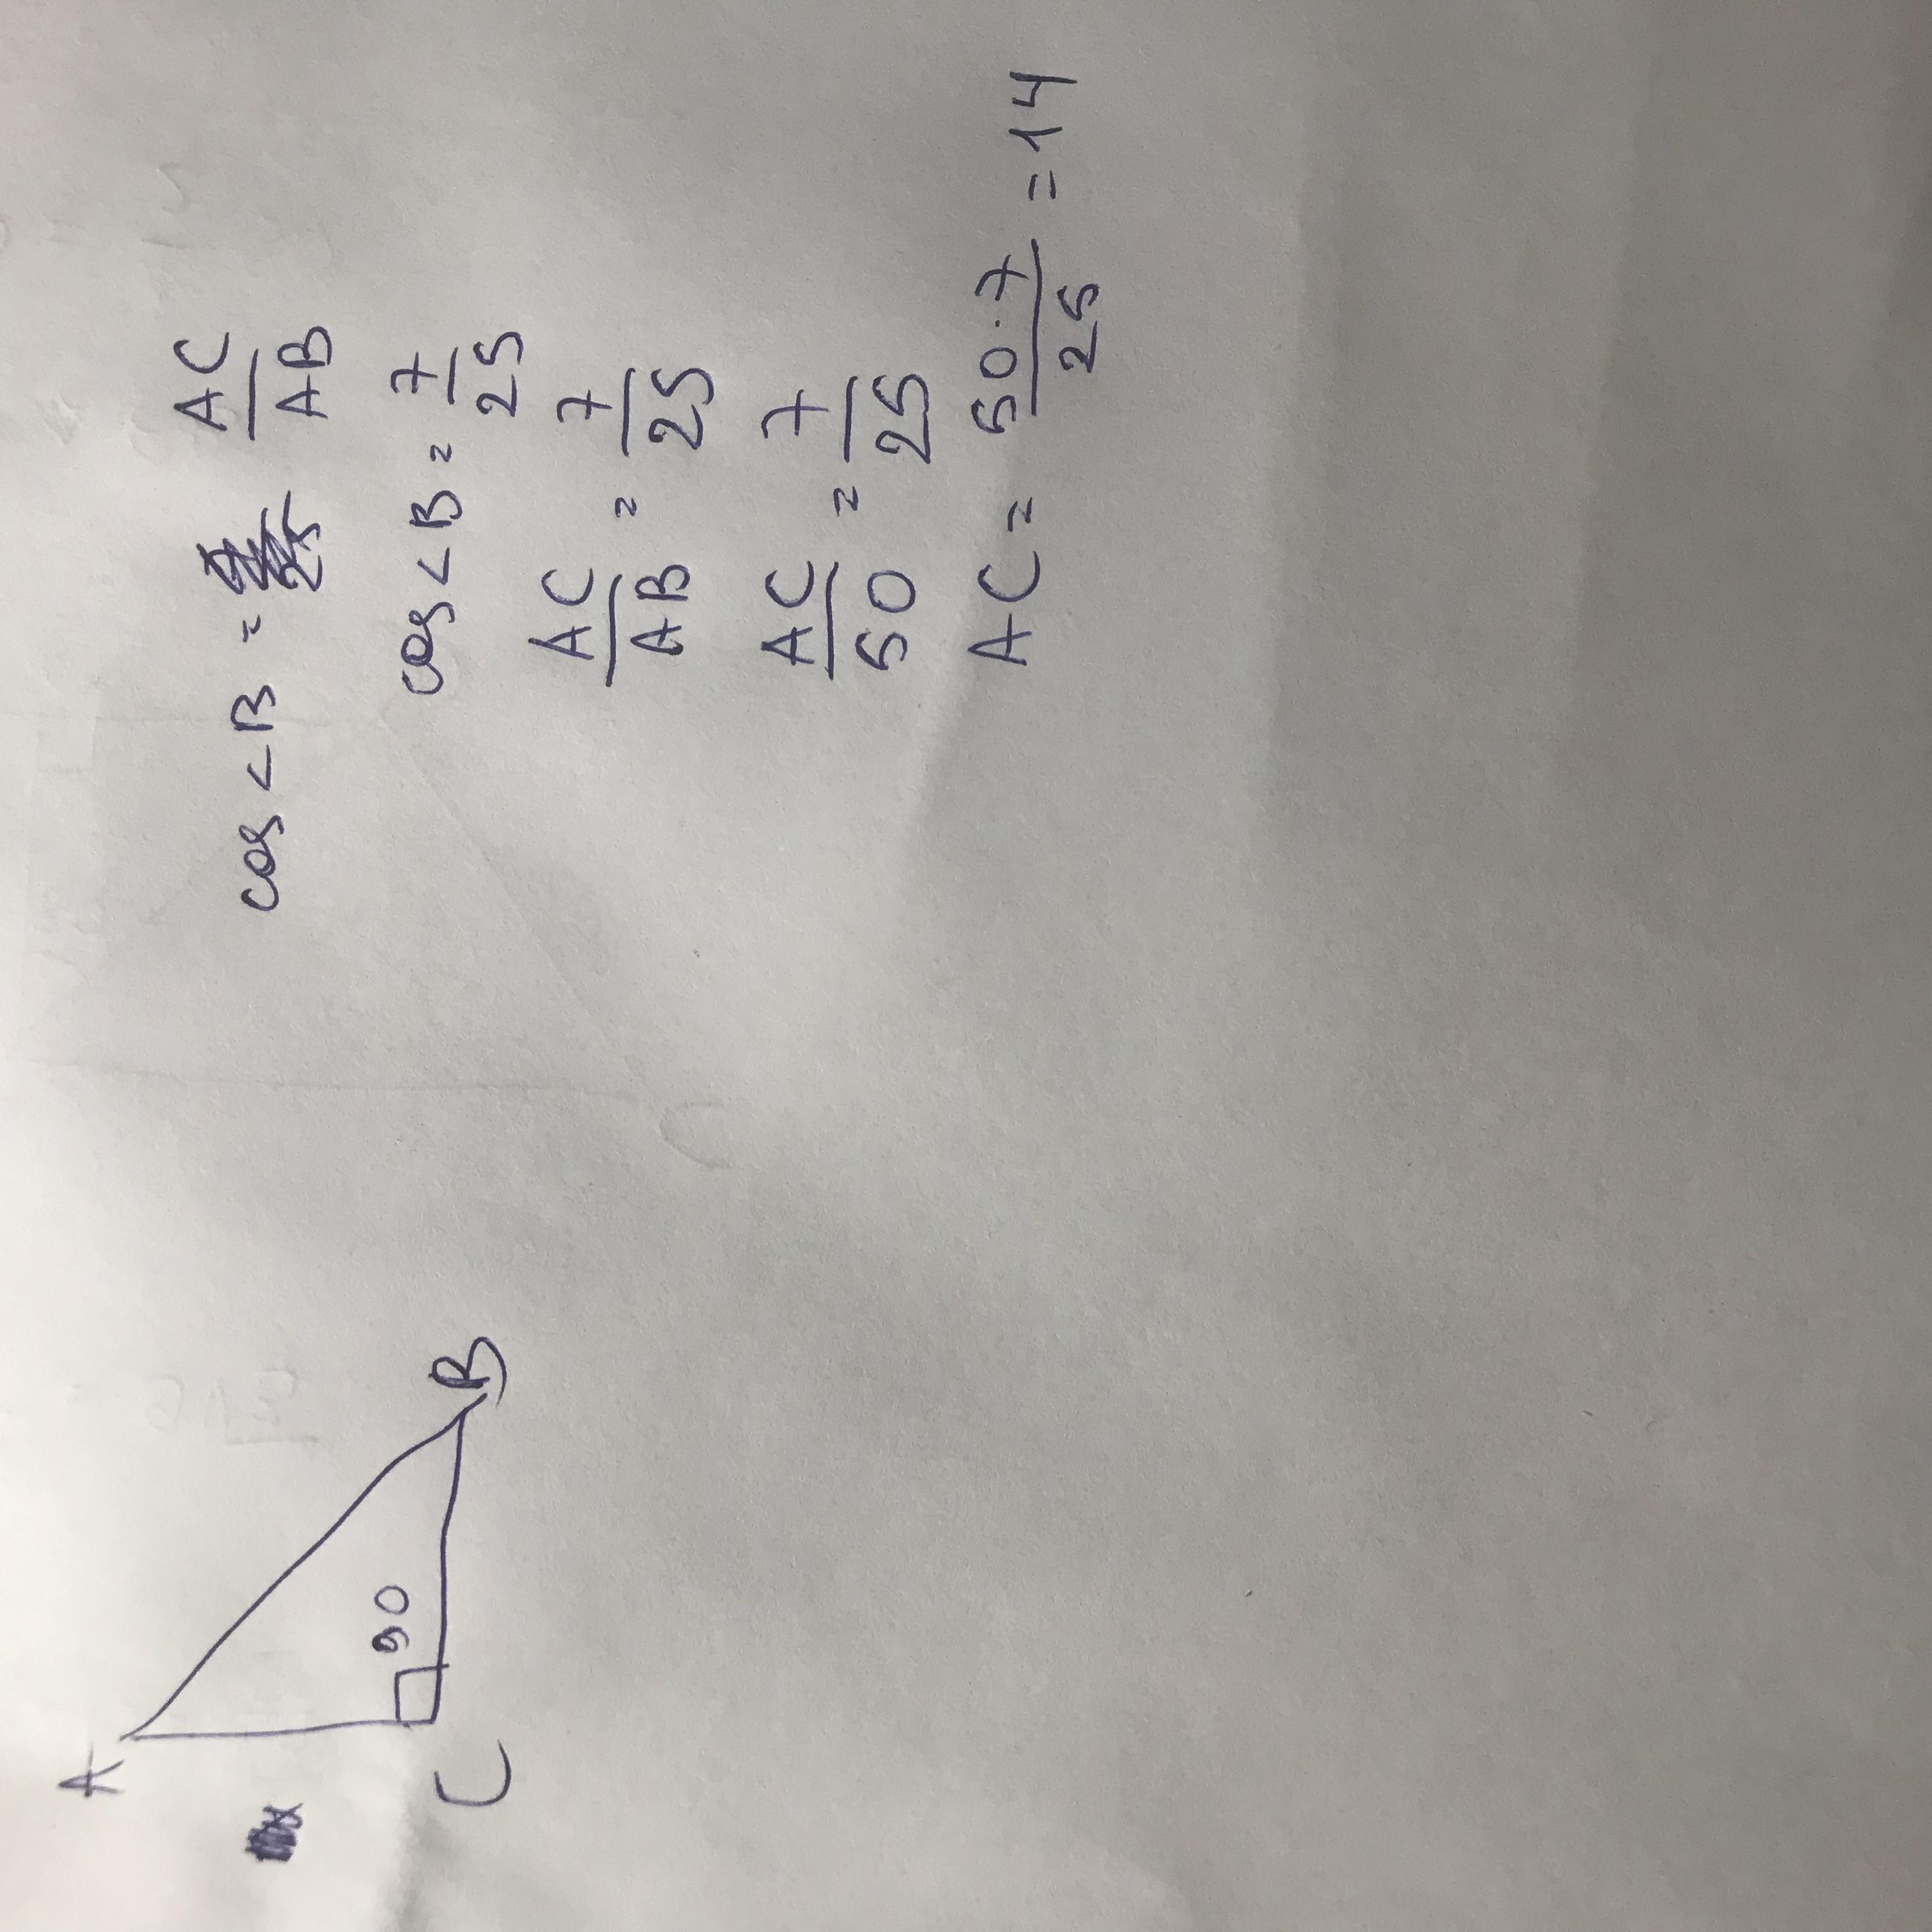 A
90
C
B
cos < B = AC/AB
cos < B = 7/25
AC/AB = 7/25
AC/50 = 7/25
AC = 50·7/25 = 14